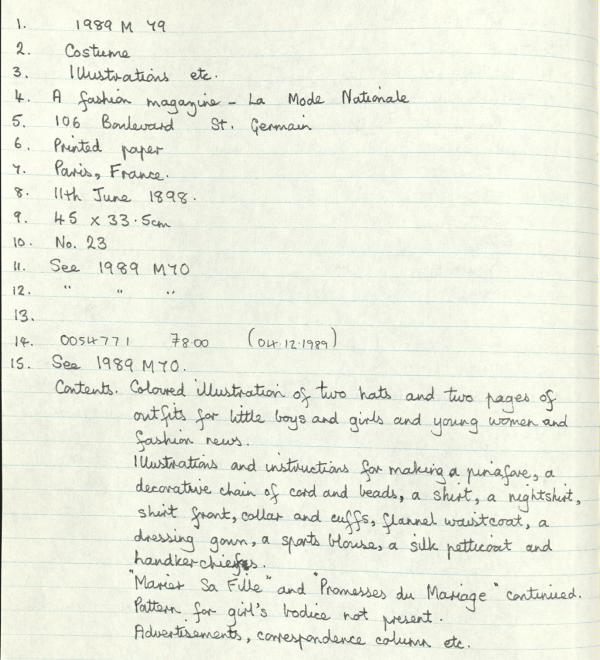 1. 1989 M 79
2. Costume
3. Illustrations etc.
4. A fashion magazine - La Mode Nationale
5. 106 Boulevard St. Germain
6. Printed paper
7. Paris, France.
8. 11th June 1898.
9. 45 x 33.5cm
10. No. 23
11. See 1989 M70
12. " " "
13.
14. 0054771 78.00 (04.12.1989)
15. See 1989 M70.
Contents. Coloured illustration of two hats and two pages of
outfits for little boys and girls and young women and
fashion news.
Illustrations and instructions for making a pinafore, a
decorative chain of cord and beads, a shirt, a nightshirt,
shirt front, collar and cuffs, flannel waistcoat, a
dressing gown, a sports blouse, a silk petticoat and
handkerchiefs.
"Marier Sa Fille" and "Promesses du Mariage" continued.
Pattern for girl's bodice not present.
Advertisements, correspondence column etc.